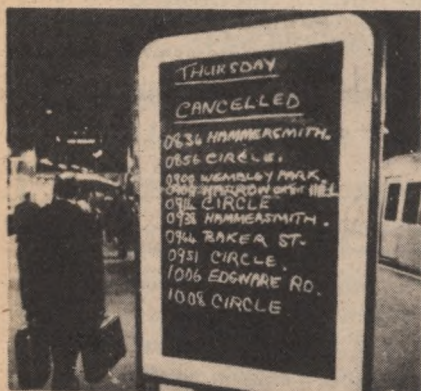 THURSDAY
CANCELLED
0836 HAMMERSMITH.
0856 CIRCLE.
0900 WEMBLEY PARK
HARROW
CIRCLE
0938 HAMMERSMITH.
BAKER ST.
0951 CIRCLE.
1006 EDGWARE RD.
1008 CIRCLE